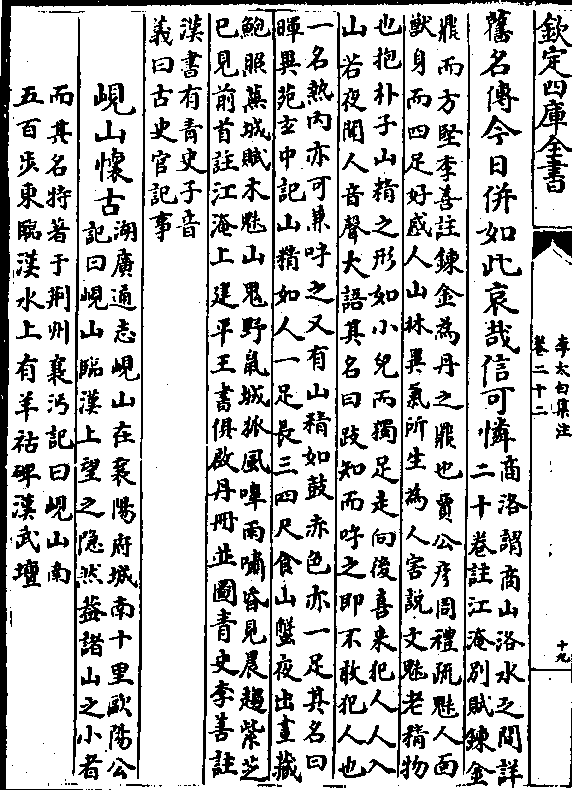 欽定四庫全書
李太白集注
卷二十二
十九
舊名傳今日併如此哀哉信可憐
商洛謂商山洛水之間詳
二十卷註江淹別賦鍊金
鼎而方堅李善註鍊金為丹之鼎也賈公彦周禮疏魅人面
獸身而四足好惑人山林異氣所生為人害説文魅老精物
也抱朴子山精之形如小兒而獨足走向後喜来犯人人入
山若夜聞人音聲大語其名曰跂知而呼之即不敢犯人也
一名熱内亦可兼呼之又有山精如鼓赤色亦一足其名曰
暉異苑玄中記山精如人一足長三四尺食山蟹夜出晝藏
鮑照蕪城賦木魅山鬼野鼠城狐風嘷雨嘯昏見晨趨紫芝
已見前首註江淹上建平王書俱啟丹冊並圖青史李善註
漢書有青史子音
義曰古史官記事
峴山懷古
湖廣通志峴山在襄陽府城南十里歐陽公
記曰峴山臨漢上望之隠然葢諸山之小者
而其名特著于荆州襄沔記曰峴山南
五百歩東臨漢水上有羊祜碑漢武壇